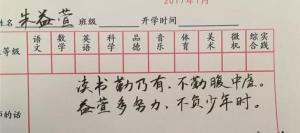 2017年1月
姓名 朱益萱 班级 开学时间
等级 语文 数学 英语 科学 品德 音乐 体育 美术 微机 综合实践
读书勤乃有,不勤腹中虚。
益萱多努力,不负少年时。
的话